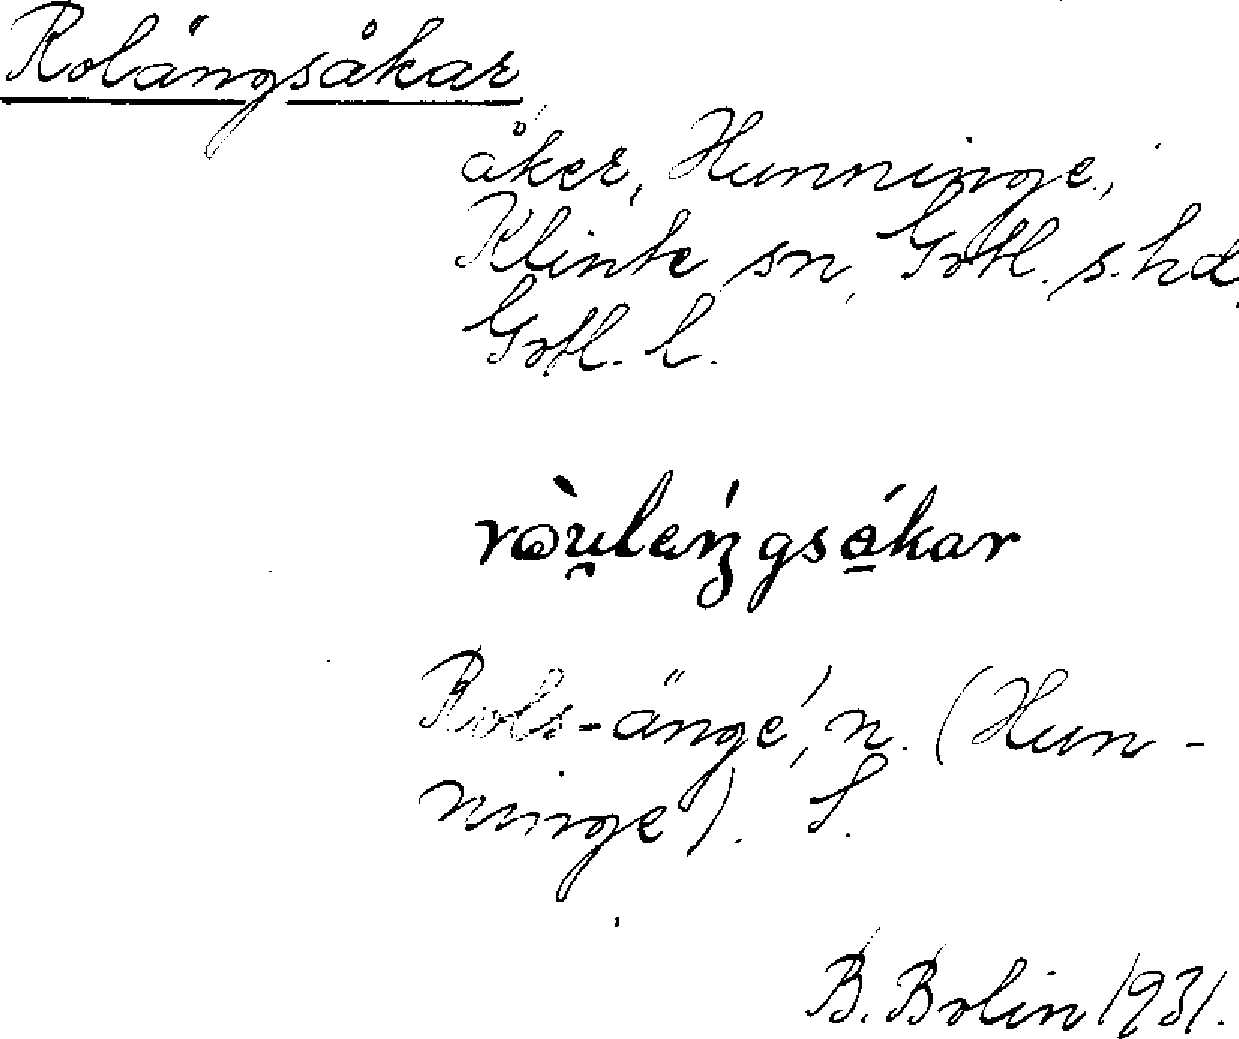 Rolängsåkar
åker, Hunninge,
Klinte sn, Gotl. s. hd,
Gotl. l.
ròu̯leŋgsákar
Rols-änge, n. (Hun-
ninge). S.
B. Bolin 1931.